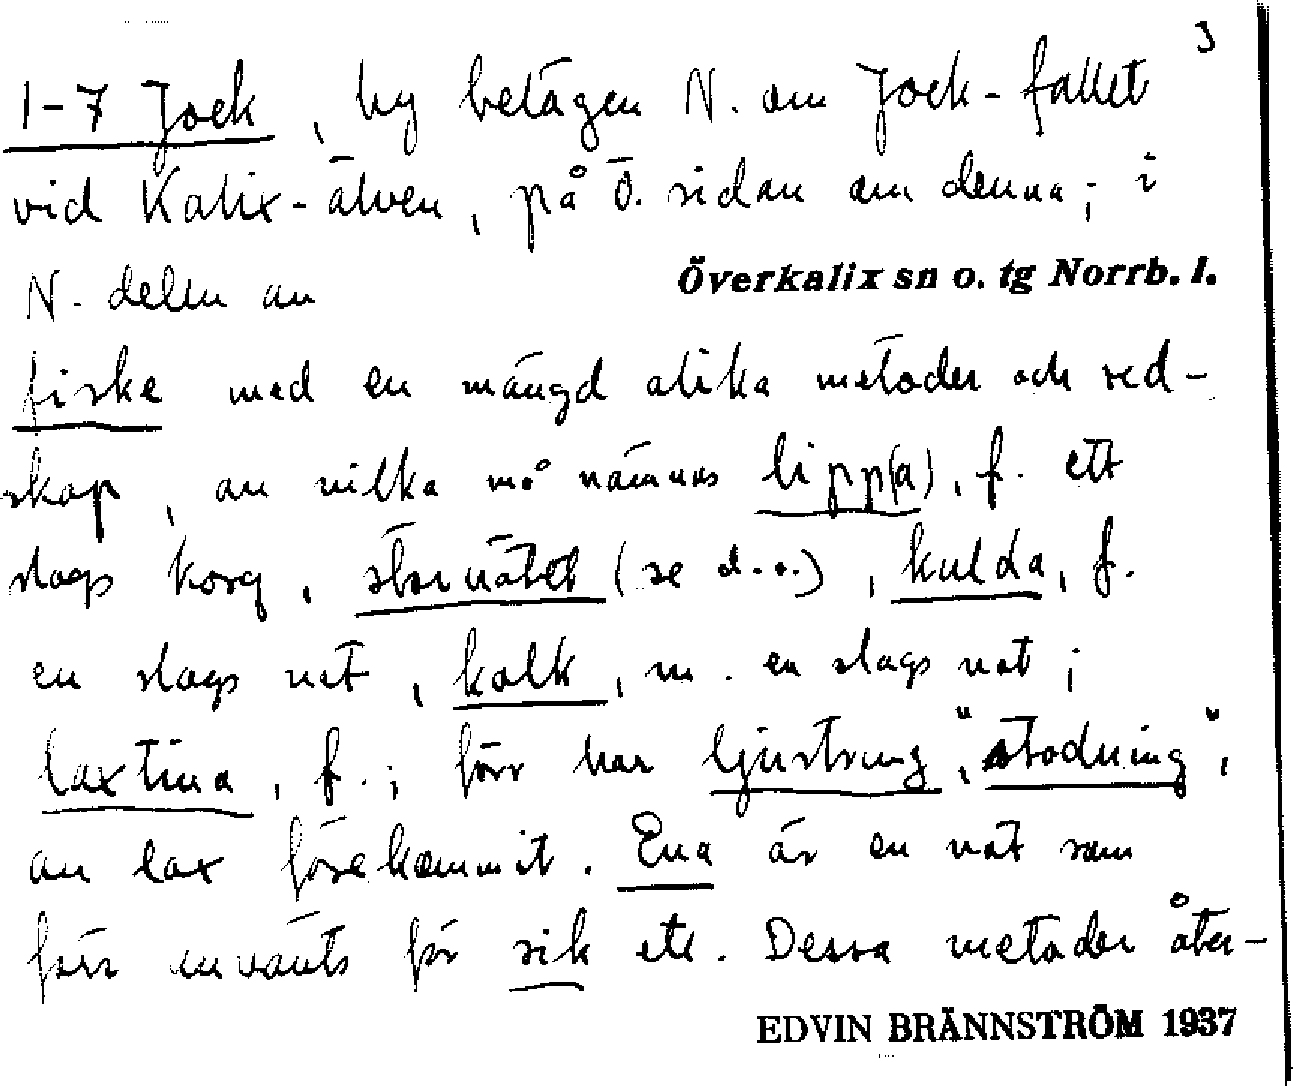 3
1-7 Jock, by belägen N. om Jock-fallet
vid Kalix-älven, på Ö. sidan om denna; i
Överkalix sn o. tg Norrb. l.
N. delen av
fiske med en mängd olika metoder och red-
skap, av vilka må nämnas lipp(a), f. ett
slags korg, stornätet (se d.o.), kulda, f.
en slags not, kolk, m. en slags not;
laxtina, f.; förr har ljustring, "stodning",
av lax förekommit. Ena är en not som
förr använts för sik etc. Dessa metoder åter-
EDVIN BRÄNNSTRÖM 1937